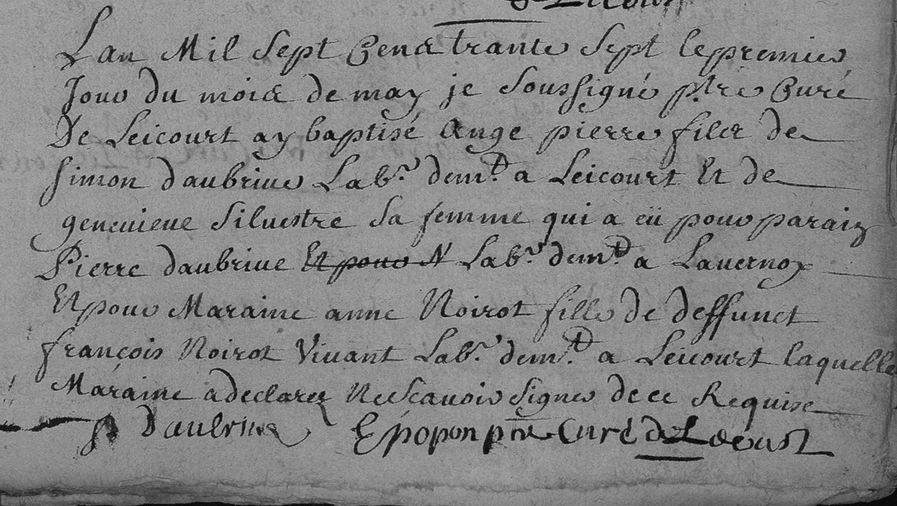 Lan Mil Sept Cent trante Sept le premier
Jour du mois de may je Soussigné ptre Curé
De Leicourt ay baptisé Ange pierre fils de
Simon daubrive Labr. demt. a Leicourt Et de
genevieve Silvestre Sa femme qui a eü pour parain
Pierre daubrive Et pour N Labr. demt. a Lavernoy
Et pour Maraine anne Noirot fille de deffunct
françois Noirot Vivant Labr. demt. a Leicourt laquelle
Maraine a declarer Ne Scavoir Signer de ce Requise
P Daubrive Epopon ptre Curé de Lecourt